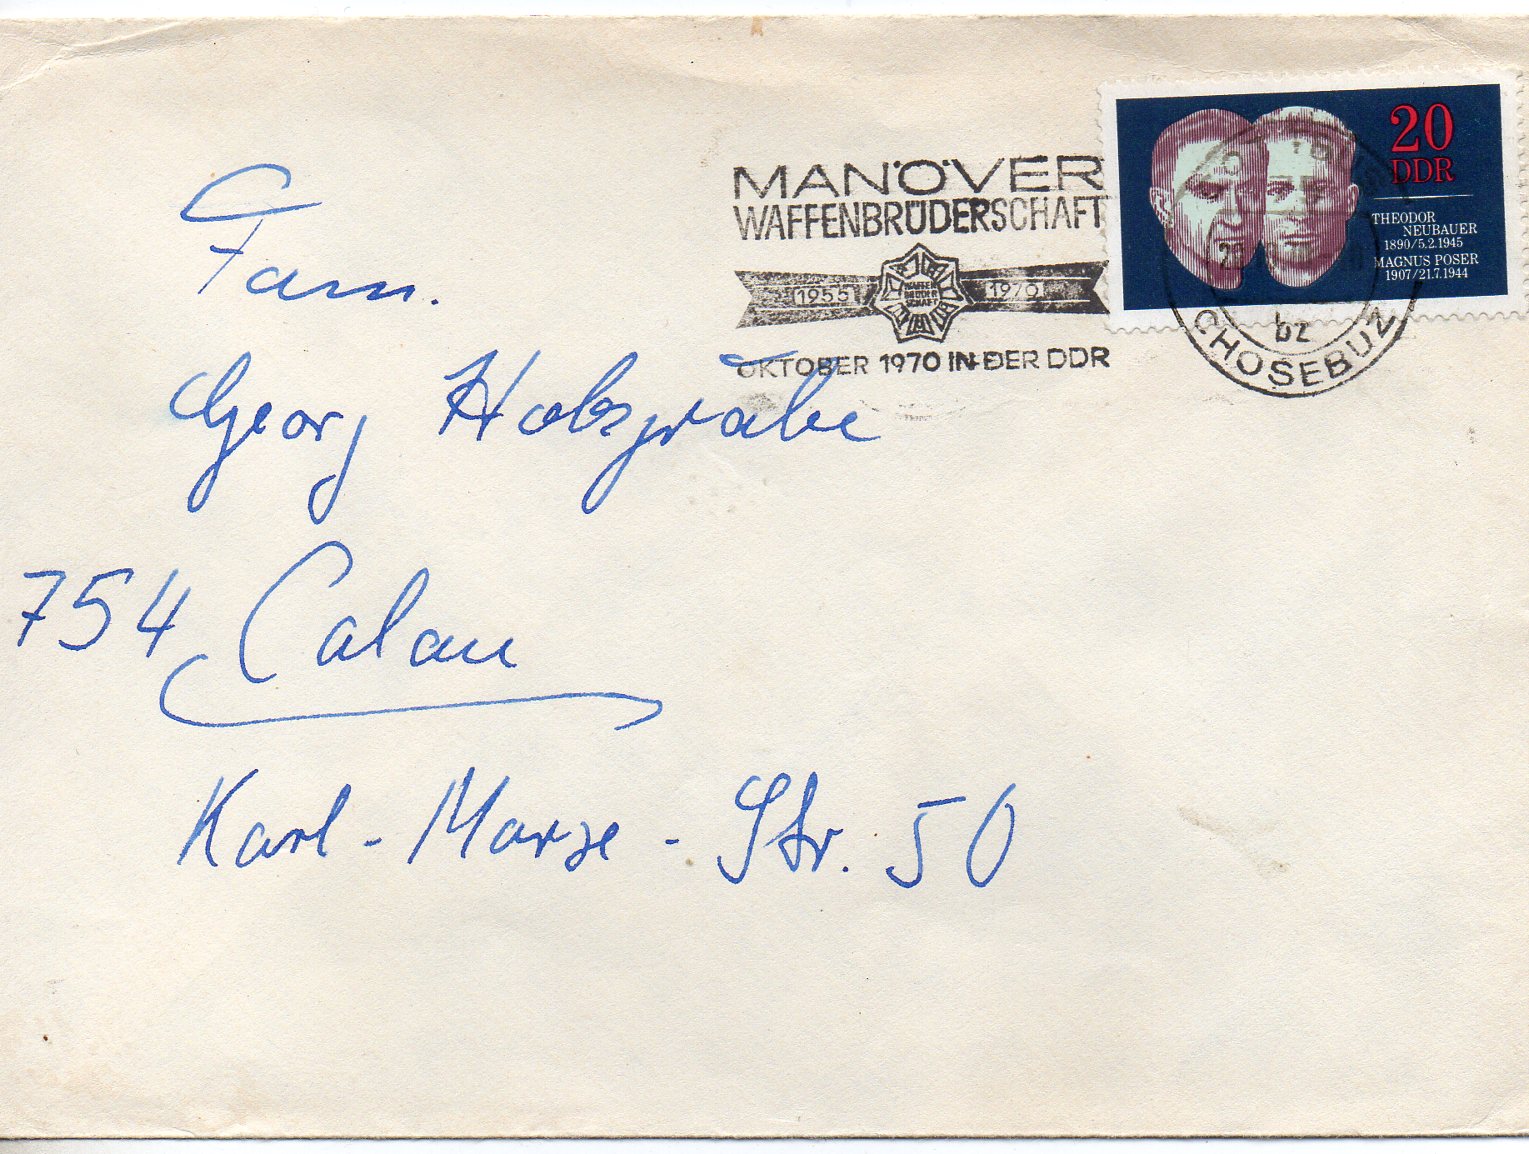 MANÖVER
WAFFENBRÜDERSCHAFT
1955 WAFFEN BRÜDER SCHAFT 1970
OKTOBER 1970 IN DER DDR
20
DDR
THEODOR
NEUBAUER
1890/5.2.1945
MAGNUS POSER
1907/21.7.1944
bz
CHOŚEBUZ
Fam.
Georg
754 Calau
Karl-Marx-Str. 50